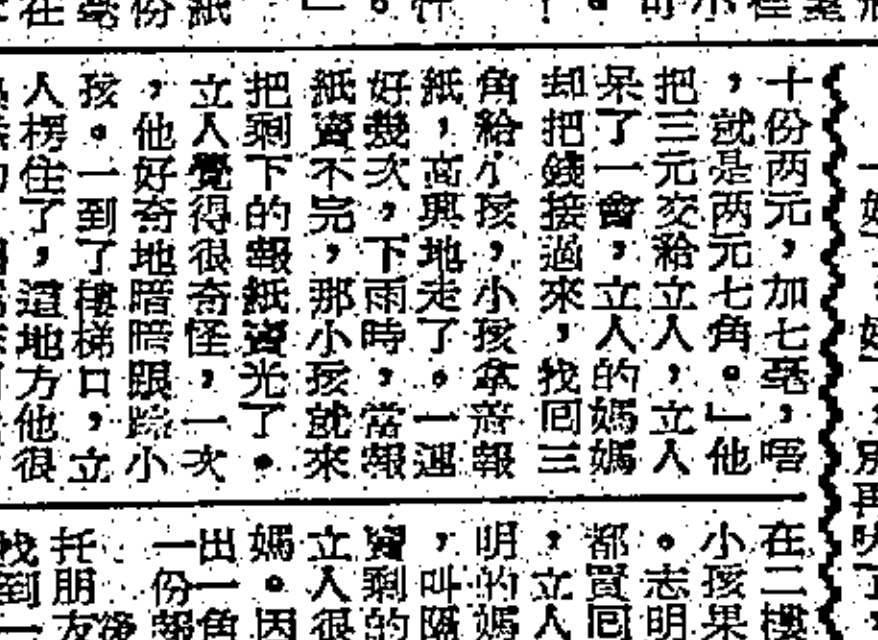 十份两元，加七毫，唔
，就是两元七角。」他
把三元交給立人，立人
呆了一會，立人的媽媽
却把錢接過來，找回三
角給小孩，小孩拿着報
紙，高興地走了。一連
好幾次，下雨時，當報
紙賣不完，那小孩就來
把剩下的報紙賣光了。
立人覺得很奇怪，一次
，他好奇地暗暗跟踪小
孩。一到了樓梯口，立
人楞住了，這地方他很
在二樓
小孩果
。志明
都買回
，立人
明的媽
，叫隔
賣剩的
立人很
媽。因
出一角
一份報
後
托朋友
找到一